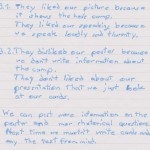 Q.1. They liked our picture because
it shows the hole camp.
They liked our speaking because
we speak loudly and fluently.
Q.2. They disliked our poster because
we don't write information about
the camp.
They don't liked about our
presentation that we just look
at our cards.
We can put more information on the
poster and our rhetorical questions.
Next time we mustn't write cards and
say the text from mind.